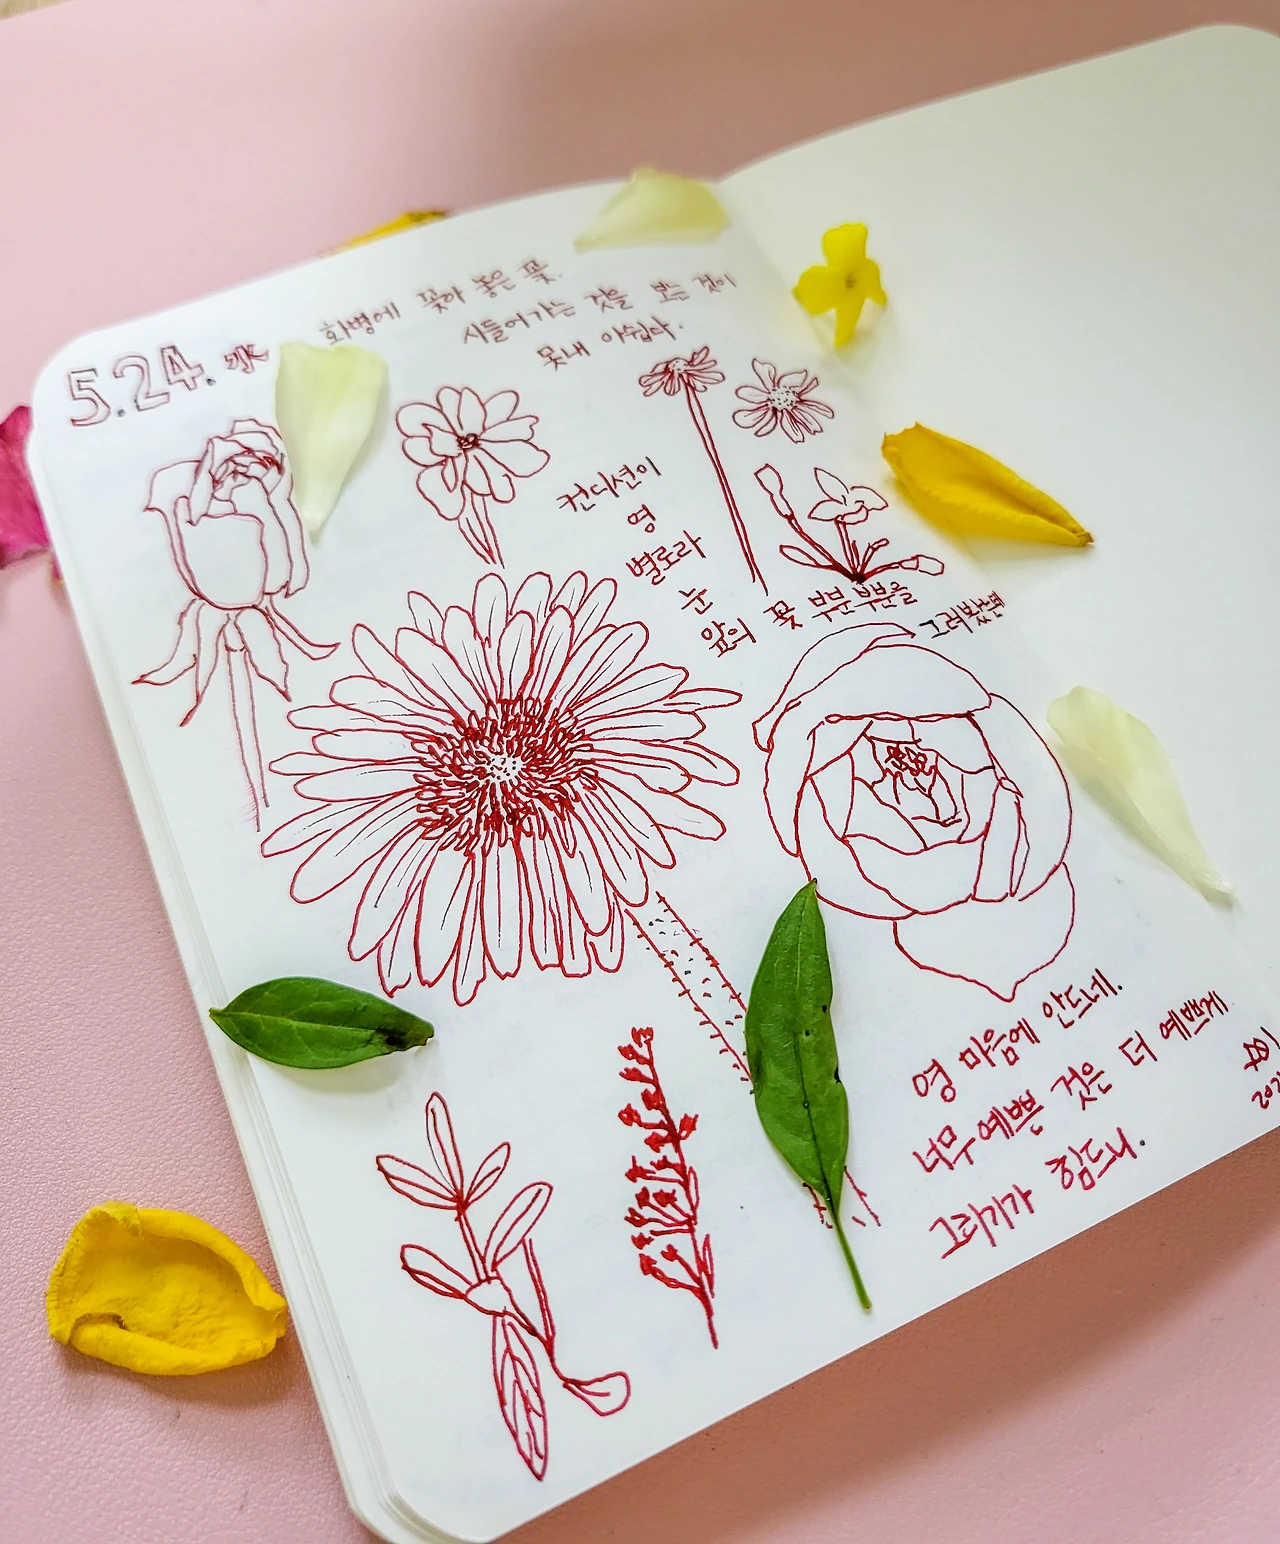 5.24. 水
화병에 꽂아 놓은 꽃.
시들어가는 것을 보는 것이
못내 아쉽다.
컨디션이
영
별로라
눈
앞의 꽃 부분부분을
그려봤는데
영 마음에 안드네.
너무 예쁜 것은 더 예쁘게
그리기가 힘드니.